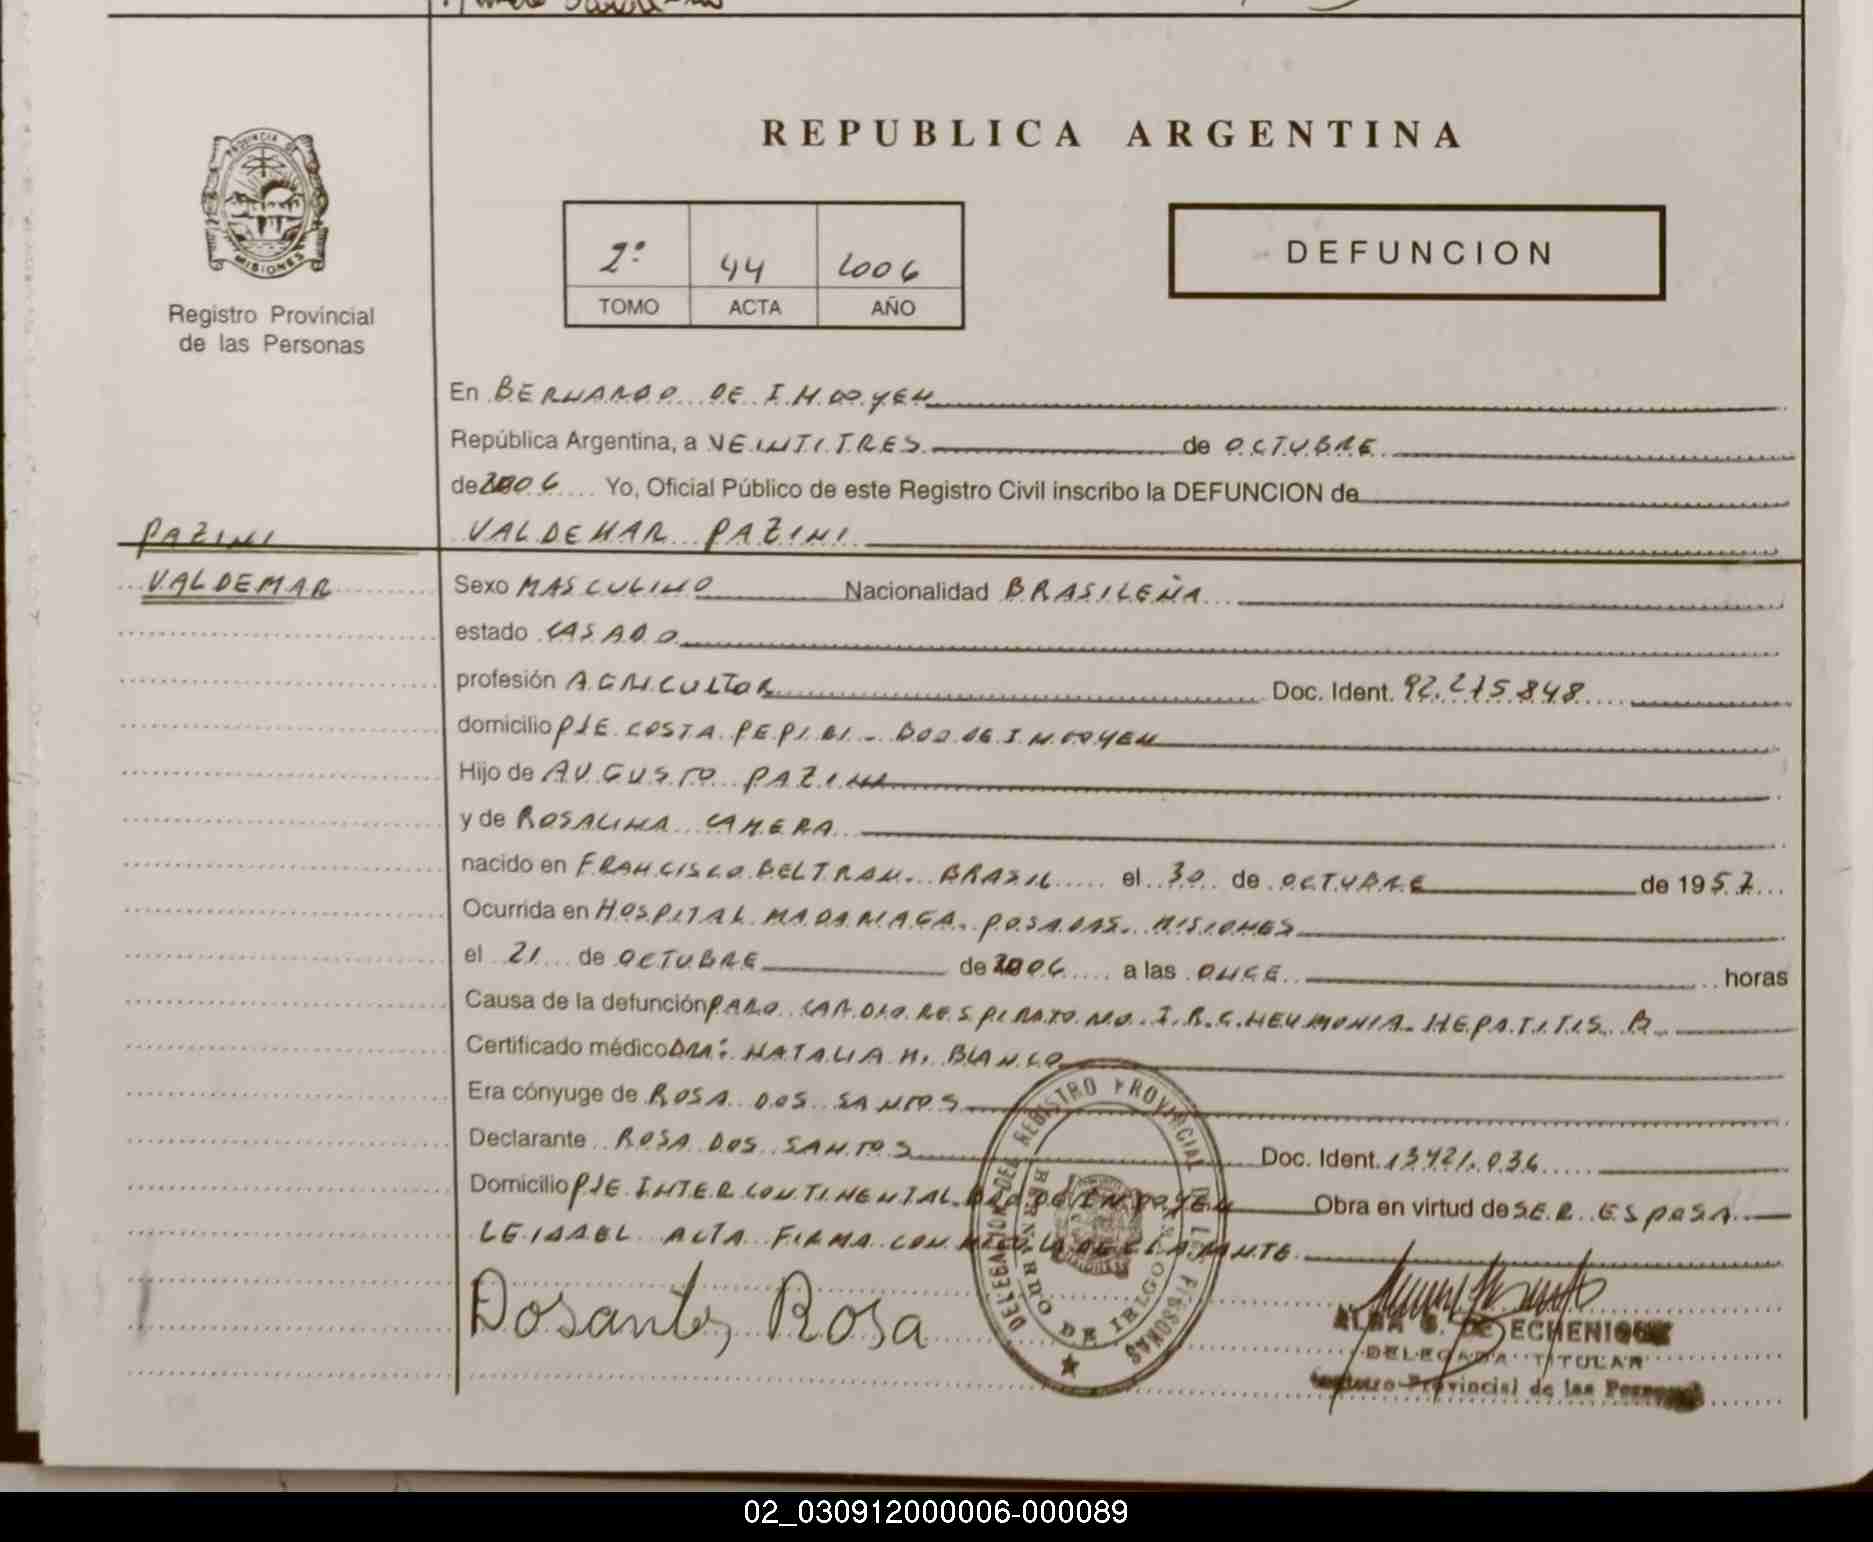 REPUBLICA ARGENTINA
PROVINCIA DE
MISIONES
Registro Provincial
de las Personas
2º 44 2006
TOMO ACTA AÑO
DEFUNCION
En BERNARDO DE IRIGOYEN
República Argentina, a VEINTITRES de OCTUBRE
de 2006 Yo, Oficial Público de este Registro Civil inscribo la DEFUNCION de
PAZINI VALDEMAR PAZINI
VALDEMAR Sexo MASCULINO Nacionalidad BRASILEÑA
estado CASADO
profesión AGRICULTOR Doc. Ident. 92.275.848
domicilio PJE COSTA PEPIRI - BDO DE IRIGOYEN
Hijo de AUGUSTO PAZINI
y de ROSALINA CAMERA
nacido en FRANCISCO BELTRAN. BRASIL el 30 de OCTUBRE de 1957
Ocurrida en HOSPITAL MADARIAGA. POSADAS. MISIONES
el 21 de OCTUBRE de 2006 a las ONCE horas
Causa de la defunción PARO CARDIO RESPIRATORIO. I.R.C. NEUMONIA. HEPATITIS B
Certificado médico DRA: NATALIA M. BLANCO
Era cónyuge de ROSA DOS SANTOS
Declarante ROSA DOS SANTOS Doc. Ident. 13421.036
Domicilio PJE INTERCONTINENTAL. BDO DE IRIGOYEN Obra en virtud de SER ESPOSA
LEIDA EL ACTA FIRMA CONMIGO LA DECLARANTE.
Dosantos Rosa
DELEGACION DEL REGISTRO PROVINCIAL DE LAS PERSONAS
BERNARDO DE IRIGOYEN
ALBA S. DE ECHENIQUE
DELEGADA TITULAR
Registro Provincial de las Personas
02_030912000006-000089